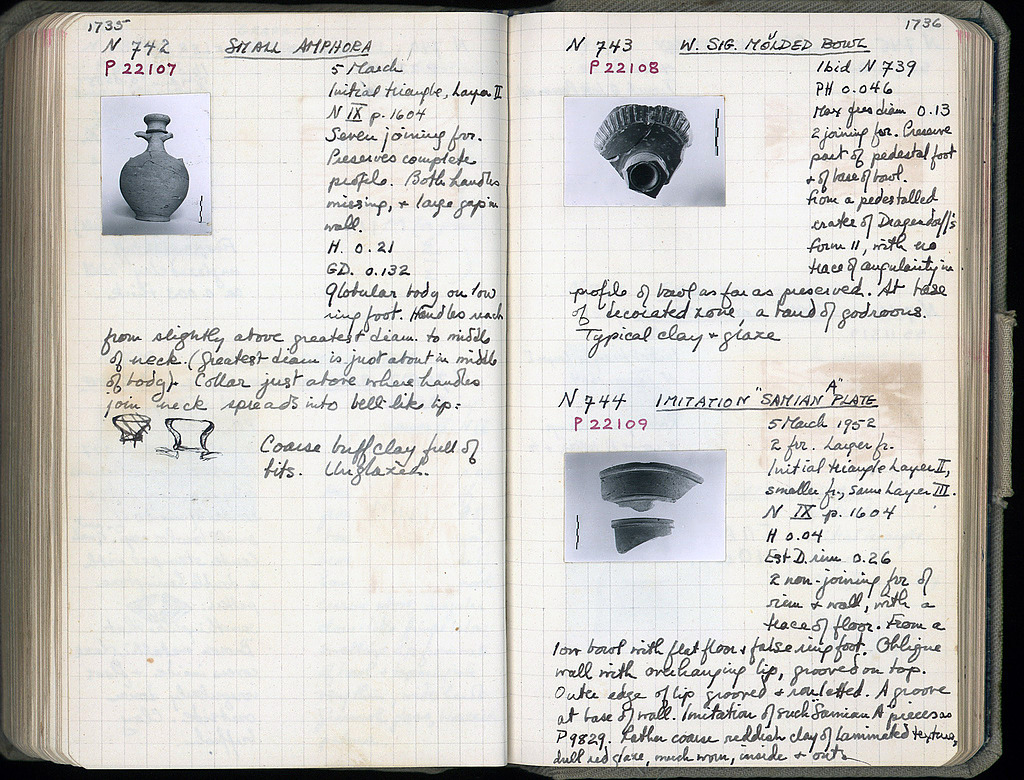 1735
N 742 SMALL AMPHORA
P 22107
5 March
Initial triangle, Layer II
N IX p. 1604
Seven joining frr.
Preserves complete
profile. Both handles
missing, + large gap in
wall.
H. 0.21
GD. 0.132
Globular body on low
ring foot. Handles reach
from slightly above greatest diam. to middle
of neck. (Greatest diam is just about in middle
of body). Collar just above where handles
join neck spreads into bell-like lip:
Coarse buff clay full of
bits. Unglazed.
1736
N 743 W. SIG. MOLDED BOWL
P 22108
Ibid N 739
PH 0.046
Max pres diam 0.13
2 joining frr. Preserve
part of pedestal foot
+ of base of bowl.
From a pedestalled
crater of Dragendorff's
form 11, with no
trace of angularity in
profile of bowl as far as preserved. At base
of decorated zone, a band of godroons.
Typical clay + glaze
N 744 IMITATION "SAMIAN A" PLATE
P 22109
5 March 1952
2 frr. Larger fr.
Initial triangle Layer II,
smaller fr., same Layer III.
N IX p. 1604
H 0.04
Est D. rim 0.26
2 non-joining frr of
rim + wall, with a
trace of floor. From a
low bowl with flat floor + false ring foot. Oblique
wall with overhanging lip, grooved on top.
Outer edge of lip grooved + rouletted. A groove
at base of wall. Imitation of such "Samian A" pieces as
P 9829. Rather coarse reddish clay of laminated texture,
dull red glaze, much worn, inside + out.